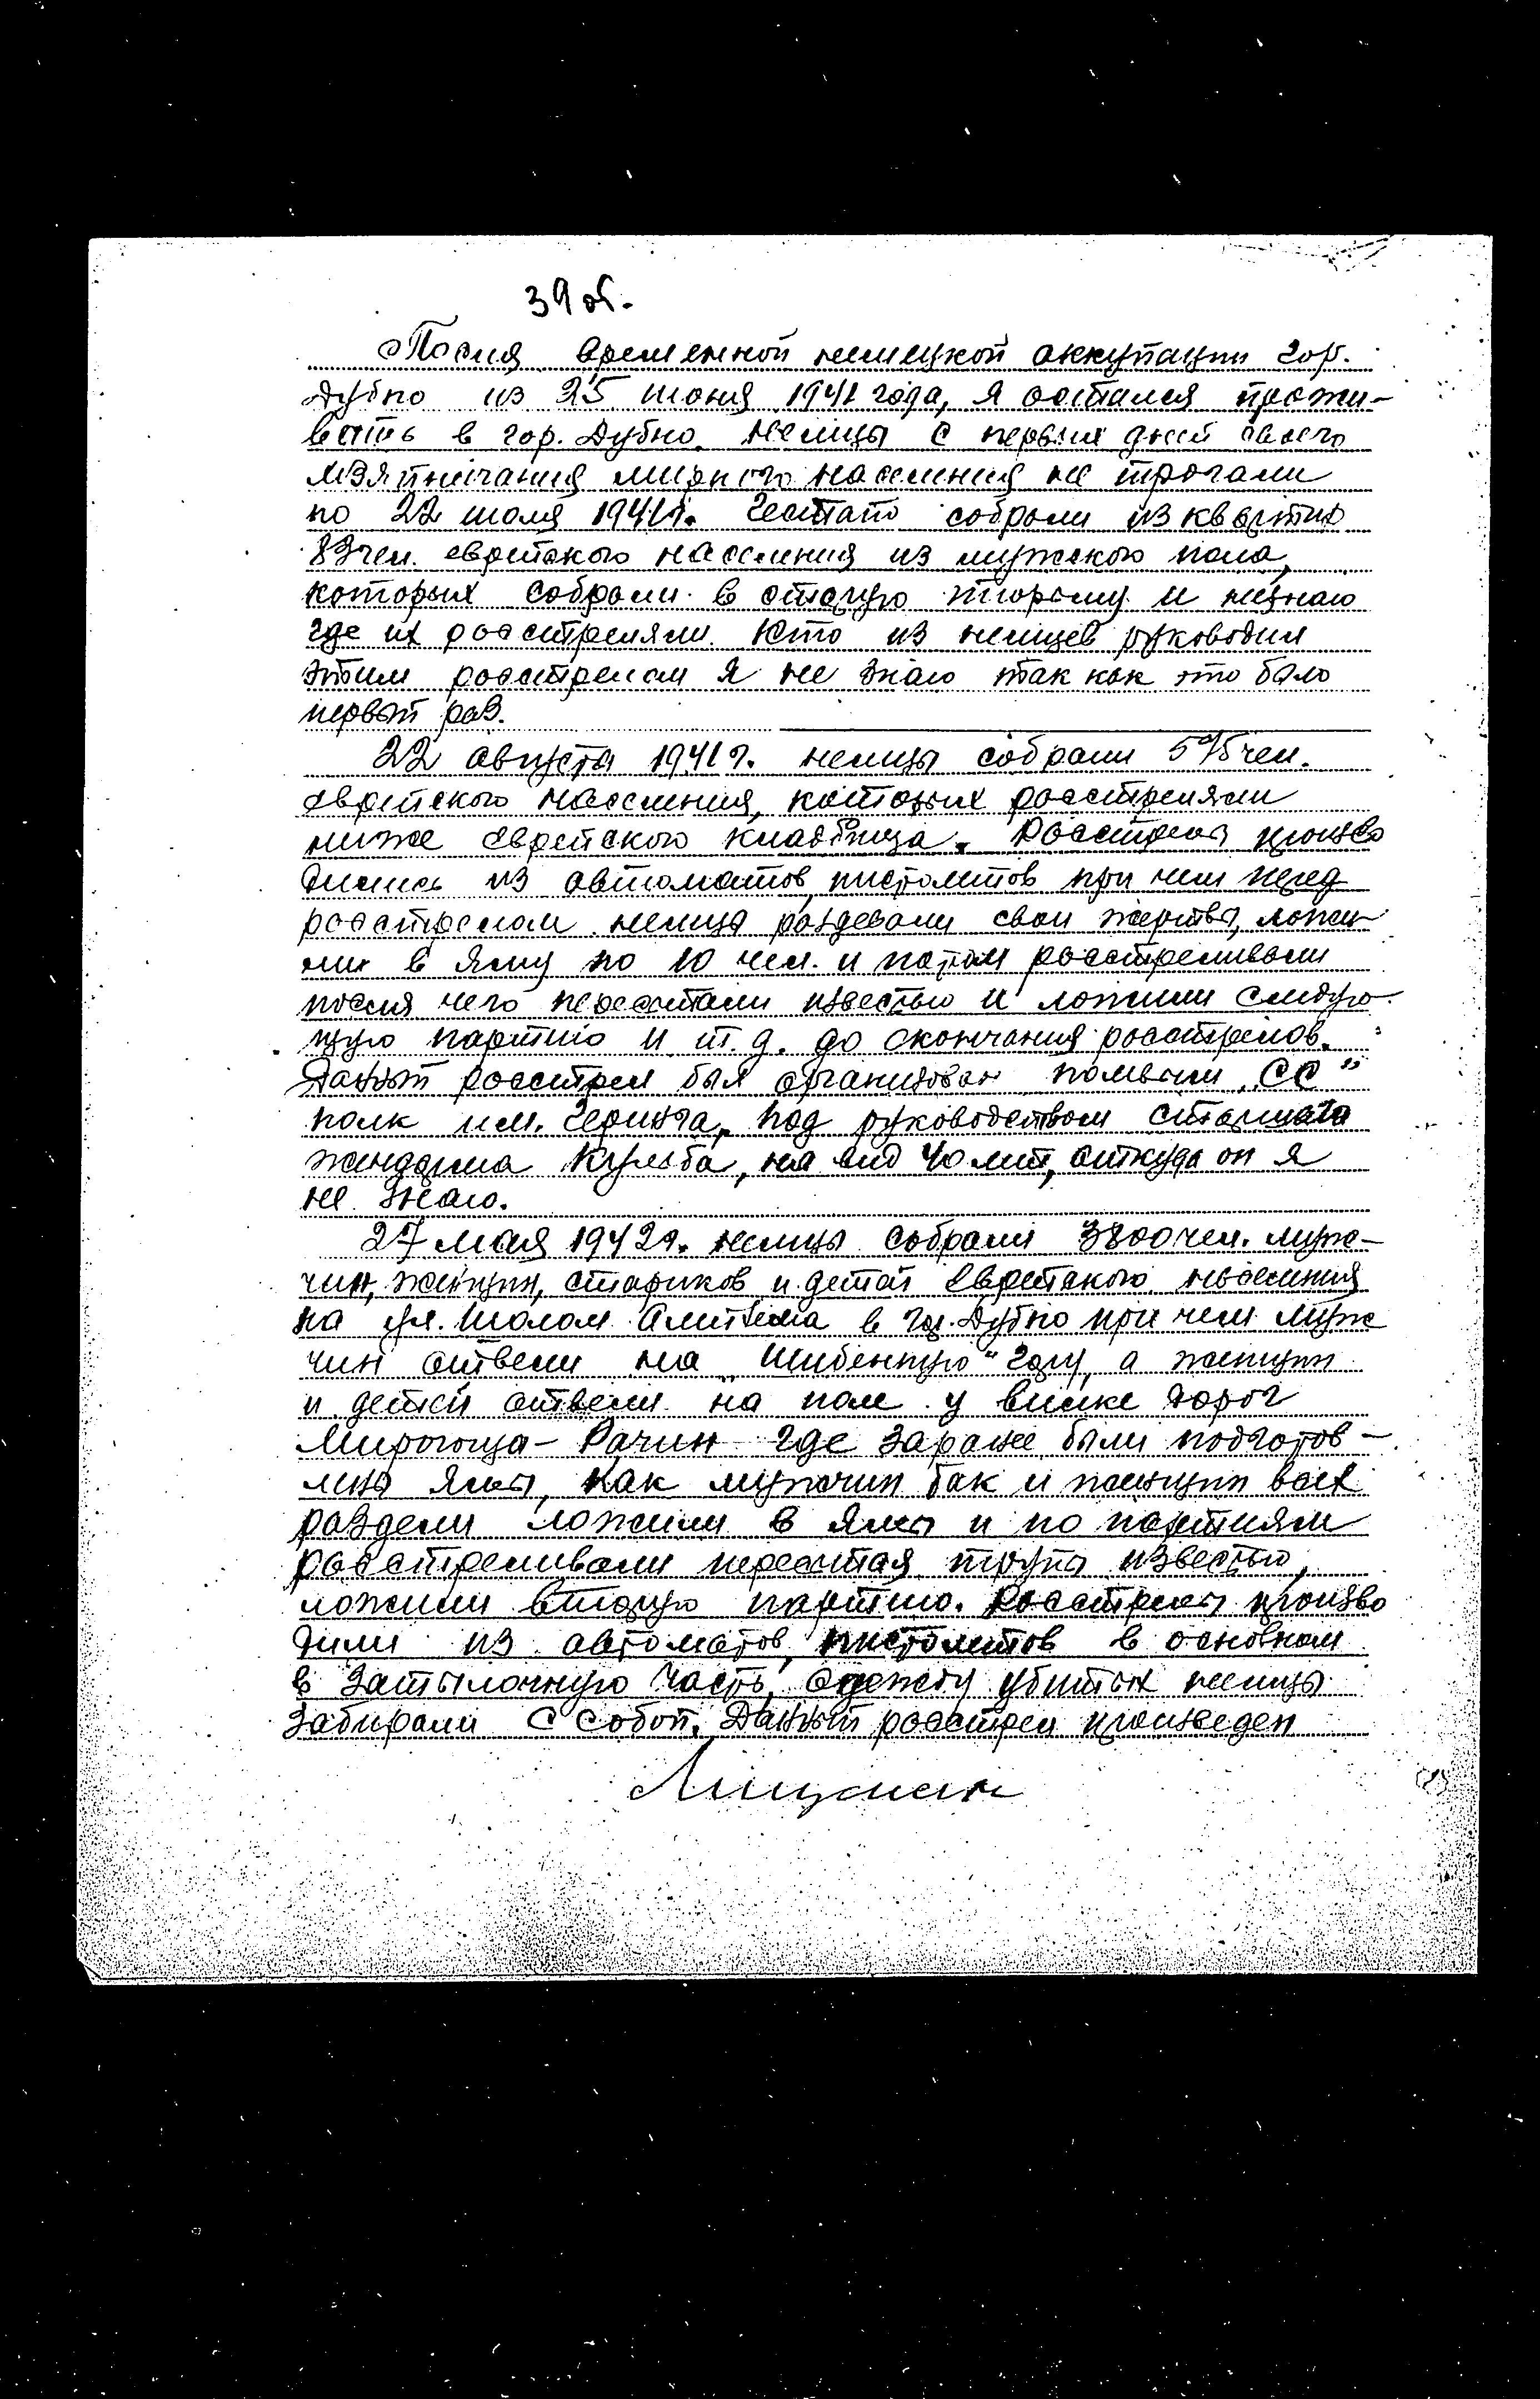 39 об.
После временной немецкой оккупации гор.
Дубно из 25 июня 1941 года, я остался прожи-
вать в гор. Дубно. Немцы с первых дней своего
мирного населения не трогали
по 22 июля 1941 г. Гестапо собрали из квартир
83 чел. еврейского населения из мужского пола,
которых собрали в старую тюрьму и незнаю
где их расстреляли. Кто из немцев руководил
этим расстрелом я не знаю так как это было
первый раз.
22 августа 1941 г. немцы собрали 575 чел.
еврейского населения, которых расстреляли
ниже еврейского кладбища. Расстрелы произво
дились из автоматов, пистолетов при чем перед
расстрелом немцы раздевали свои жертвы, ложи-
ли в яму по 10 чел. и потом расстреливали
после чего пересыпали известью и ложили следую-
щую партию и т.д. до окончания расстрелов.
Даный расстрел был организован полевым „СС"
полк им. Геринга, под руководством старшего
жандарма Кульба, на вид 40 лет, откуда он я
не знаю.
27 мая 1942 г. немцы собрали 3800 чел. муж-
чин, женщин, стариков и детей еврейского населения
на ул. Шолом Алейхема в гор. Дубно при чем муж
чин отвели на „Шибенную" гору, а женщин
и детей отвели на поле у вилке дорог
Мирогоща – Рачин где заранее были подготов-
лены ямы, как мужчин так и женщин всех
раздели ложили в ямы и по партиям
расстреливали пересыпая трупы известью,
ложили вторую партию. Расстрелы произво
дили из автоматов, пистолетов в основном
в затылочную часть, одежду убитых немцы
забирали с собой. Даный расстрел произведен
Лицман